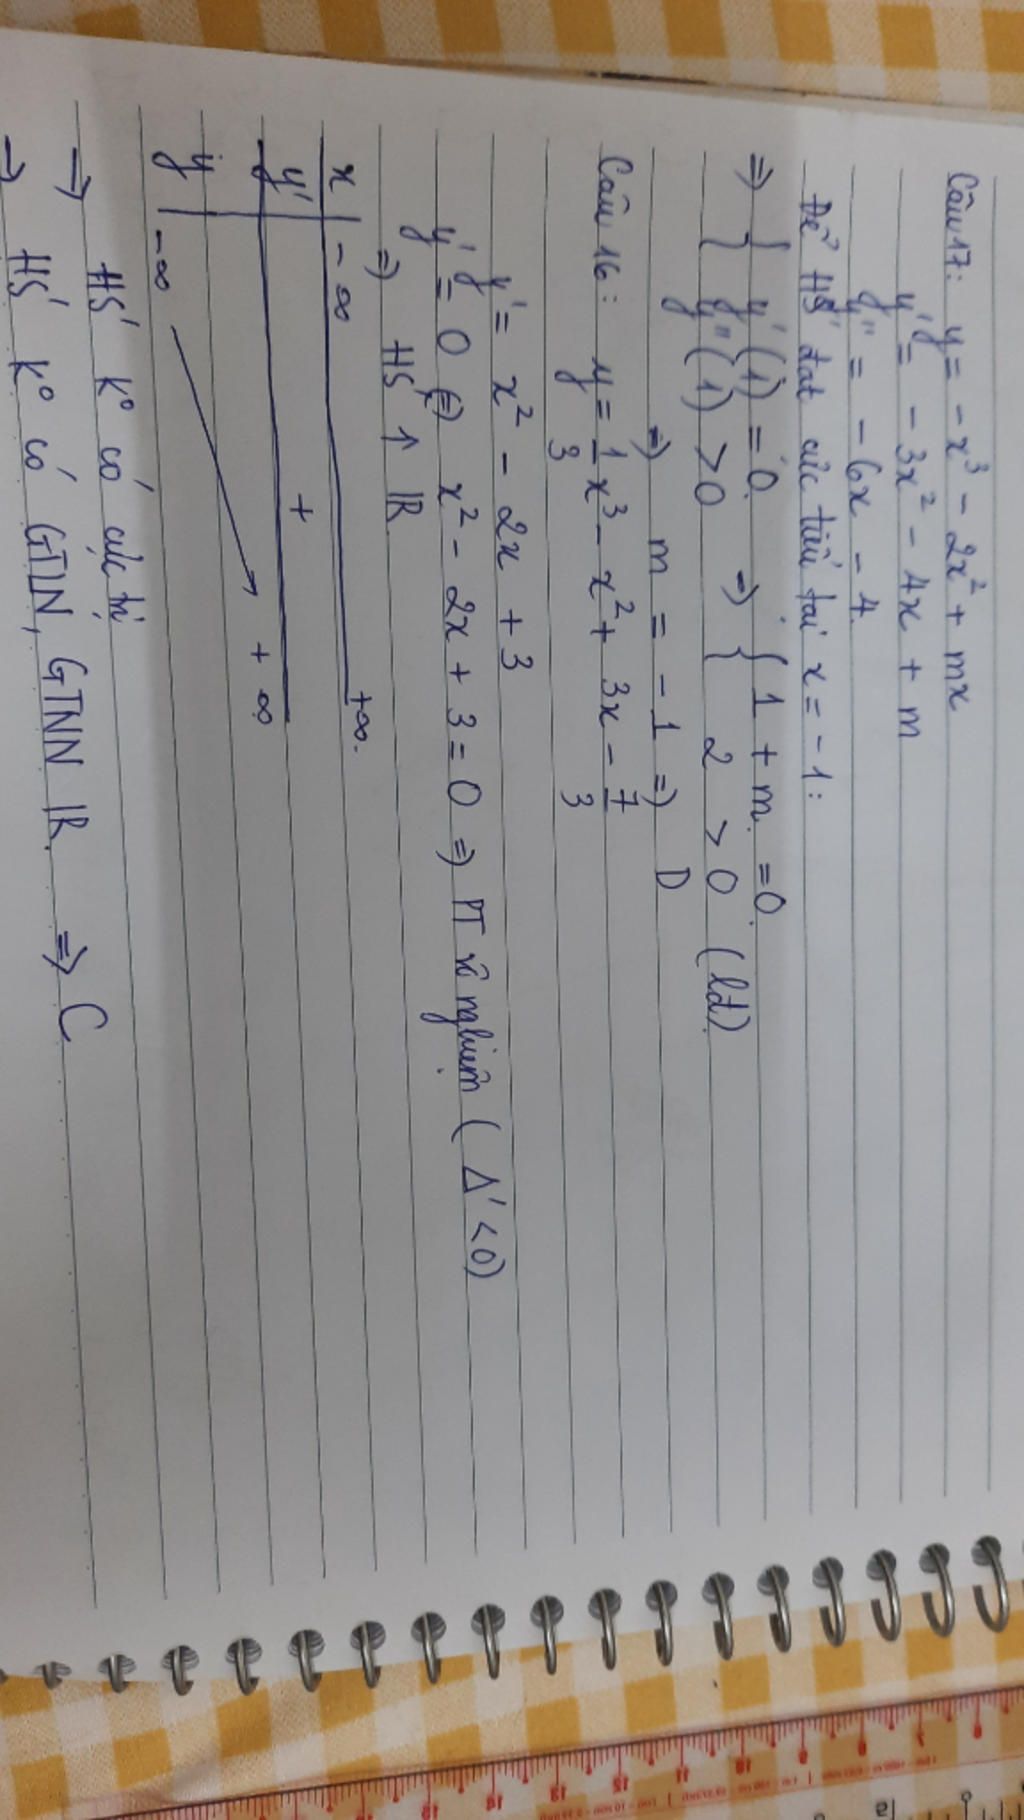 Câu 17: y = - x³ - 2x² + mx
y' = - 3x² - 4x + m
y'' = - 6x - 4
Để HS đạt cực tiểu tại x = -1:
=> { y'(1) = 0 => { 1 + m = 0
y''(1) > 0 2 > 0 (lđ)
=> m = -1 => D
Câu 16: y = 1/3 x³ - x² + 3x - 7/3
y' = x² - 2x + 3
y' = 0 <=> x² - 2x + 3 = 0 => PT vô nghiệm (Δ' < 0)
=> HS ↑ ℝ
x -∞ +∞
y' +
y -∞ +∞
→ HS k° có cực trị
→ HS k° có GTLN, GTNN ℝ => C